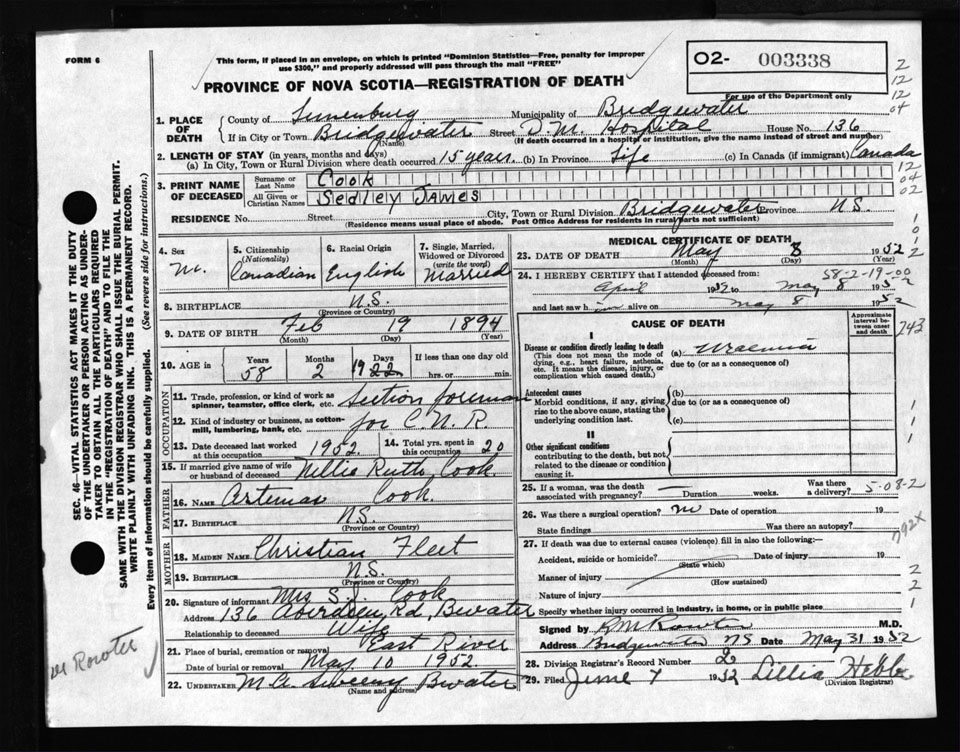 FORM 6
This form, if placed in an envelope, on which is printed "Dominion Statistics—Free, penalty for improper
use $300," and properly addressed will pass through the mail "FREE"
02- 003338
For use of the Department only
2
12
12
04
PROVINCE OF NOVA SCOTIA—REGISTRATION OF DEATH
1. PLACE OF DEATH
County of Lunenburg Municipality of Bridgewater
If in City or Town Bridgewater Street D.M. Hospital House No. 136
(Name) (If death occurred in a hospital or institution, give the name instead of street and number)
2. LENGTH OF STAY (in years, months and days)
(a) In City, Town or Rural Division where death occurred 15 years (b) In Province Life (c) In Canada (if immigrant) Canada
3. PRINT NAME OF DECEASED
Surname or Last Name Cook
All Given or Christian Names Sedley James
12
04
02
RESIDENCE No. Street City, Town or Rural Division Bridgewater Province N.S.
(Residence means usual place of abode. Post Office Address for residents in rural parts not sufficient)
4. Sex M.
5. Citizenship (Nationality) Canadian
6. Racial Origin English
7. Single, Married, Widowed or Divorced (write the word) Married
8. BIRTHPLACE N.S.
(Province or Country)
9. DATE OF BIRTH Feb 19 1894
(Month) (Day) (Year)
10. AGE in Years 58 Months 2 Days 19 22 If less than one day old hrs. or min.
OCCUPATION
11. Trade, profession, or kind of work as spinner, teamster, office clerk, etc. section foreman
12. Kind of industry or business, as cotton-mill, lumbering, bank, etc. for C.N.R.
13. Date deceased last worked at this occupation 1952 14. Total yrs. spent in this occupation 20
15. If married give name of wife or husband of deceased Nellie Ruth Cook
FATHER
16. NAME Artemas Cook.
17. BIRTHPLACE N.S.
(Province or Country)
MOTHER
18. MAIDEN NAME Christian Fleet
19. BIRTHPLACE N.S.
(Province or Country)
20. Signature of informant Mrs S. J. Cook
Address 136 Aberdeen Rd, Bwater
Relationship to deceased Wife
21. Place of burial, cremation or removal East River
Date of burial or removal May 10 1952.
22. UNDERTAKER Sweeny Bwater
(Name and address)
MEDICAL CERTIFICATE OF DEATH
23. DATE OF DEATH May 8 1952
(Month) (Day)
24. I HEREBY CERTIFY that I attended deceased from: 58-2-19-00
April 1952 to May 8 1952
and last saw him alive on May 8 1952
CAUSE OF DEATH
Approximate interval between onset and death
743
I
Disease or condition directly leading to death
(This does not mean the mode of dying, e.g., heart failure, asthenia, etc. It means the disease, injury, or complication which caused death.)
(a) Uraemia
due to (or as a consequence of)
Antecedent causes
Morbid conditions, if any, giving rise to the above cause, stating the underlying condition last.
(b)
due to (or as a consequence of)
(c)
II
Other significant conditions contributing to the death, but not related to the disease or condition causing it.
25. If a woman, was the death associated with pregnancy? — Duration weeks. Was there a delivery? 5-08-2
26. Was there a surgical operation? no Date of operation 19
State findings Was there an autopsy?
792x
27. If death was due to external causes (violence) fill in also the following:
Accident, suicide or homicide? Date of injury 19
(State which)
Manner of injury
(How sustained)
Nature of injury
Specify whether injury occurred in industry, in home, or in public place
Signed by M.D.
Address Bridgewater NS Date May 31 1952
28. Division Registrar's Record Number
29. Filed June 7 1952 Lillia Hebb
(Division Registrar)
SEC. 46—VITAL STATISTICS ACT MAKES IT THE DUTY
OF THE UNDERTAKER OR PERSON ACTING AS UNDER-
TAKER TO OBTAIN ALL THE PARTICULARS REQUIRED
IN THE "REGISTRATION OF DEATH" AND TO FILE THE
SAME WITH THE DIVISION REGISTRAR WHO SHALL ISSUE THE BURIAL PERMIT.
WRITE PLAINLY WITH UNFADING INK. THIS IS A PERMANENT RECORD.
Every item of information should be carefully supplied. (See reverse side for instructions.)